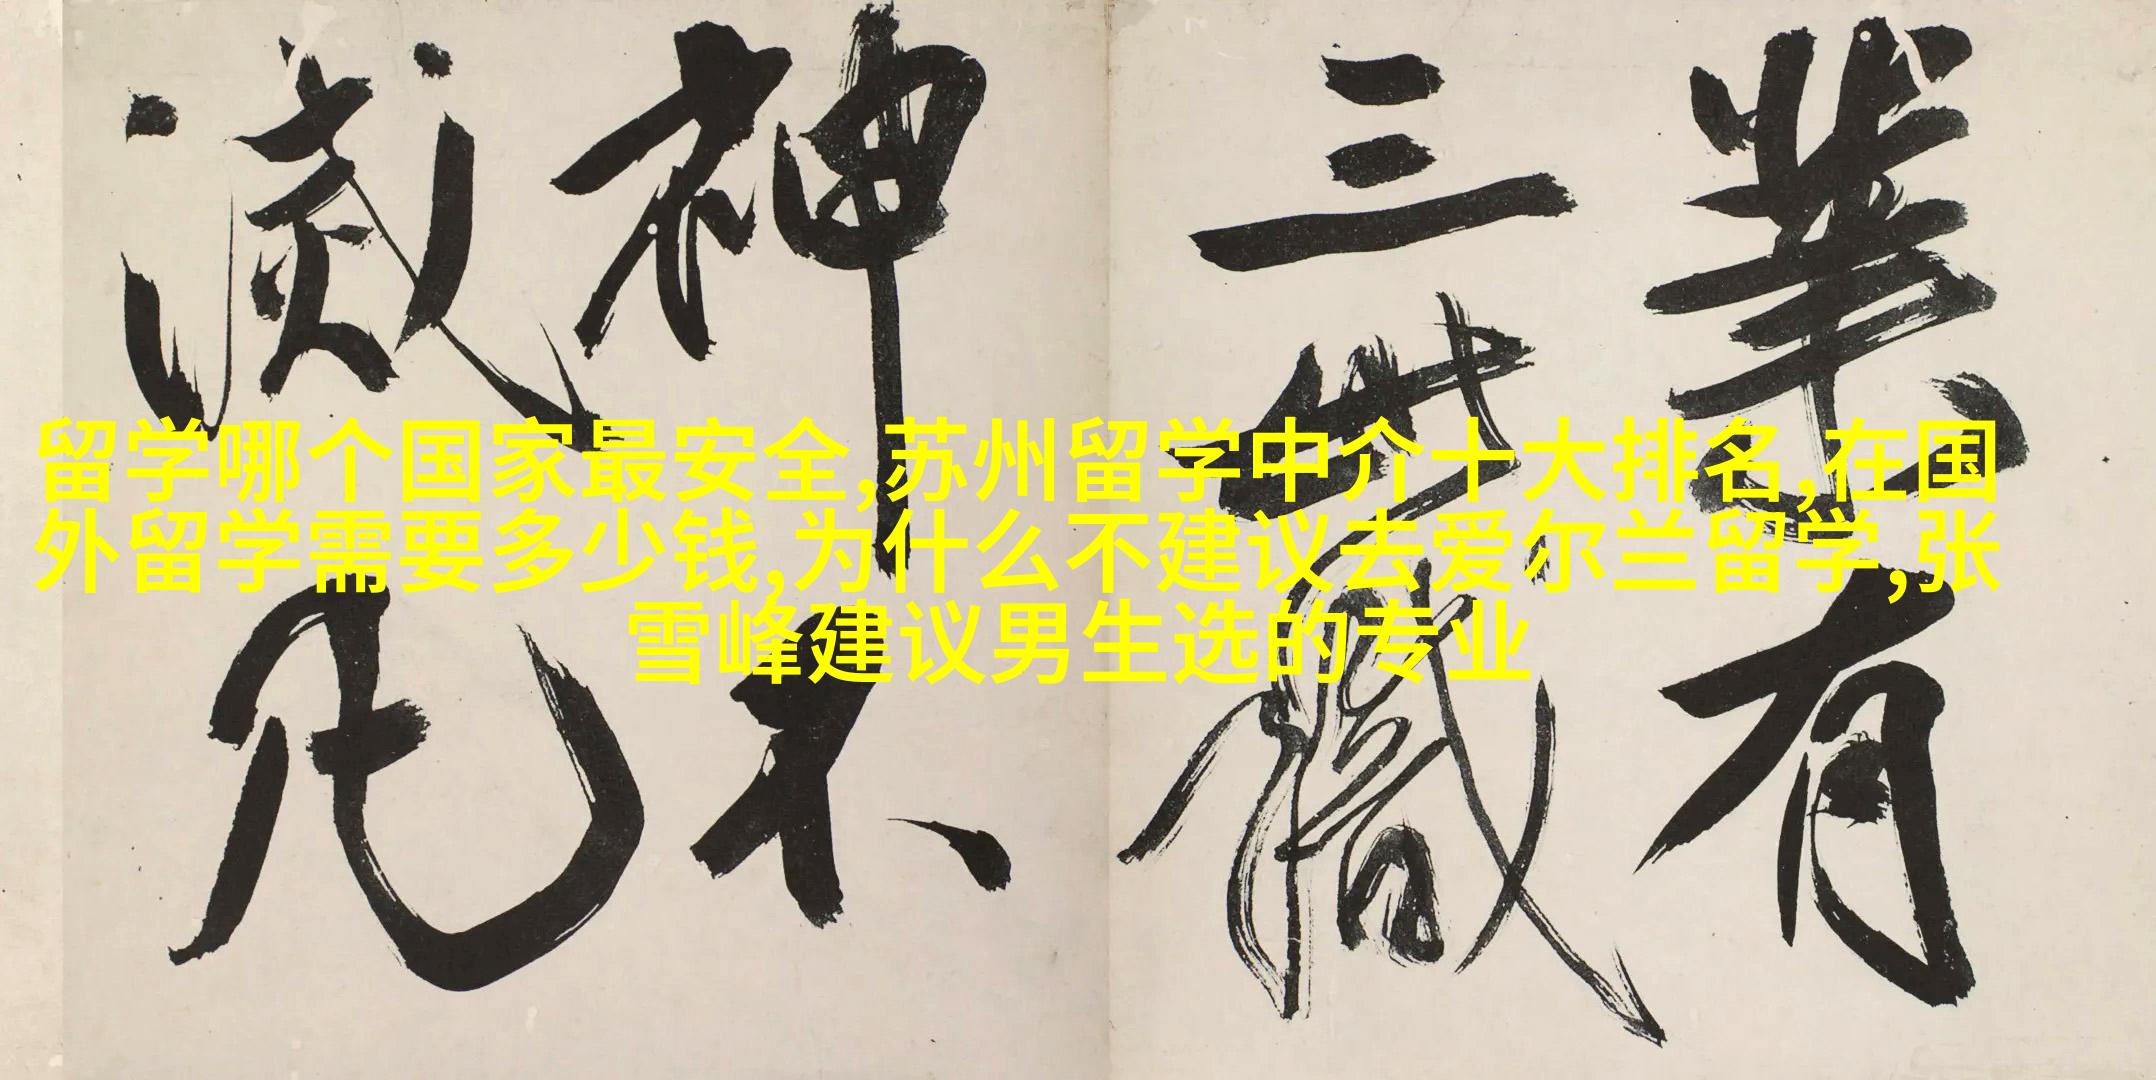 業有
三世識
神不
滅凡
留学哪个国家最安全,苏州留学中介十大排名,在国
外留学需要多少钱,为什么不建议去爱尔兰留学,张
雪峰建议男生选的专业